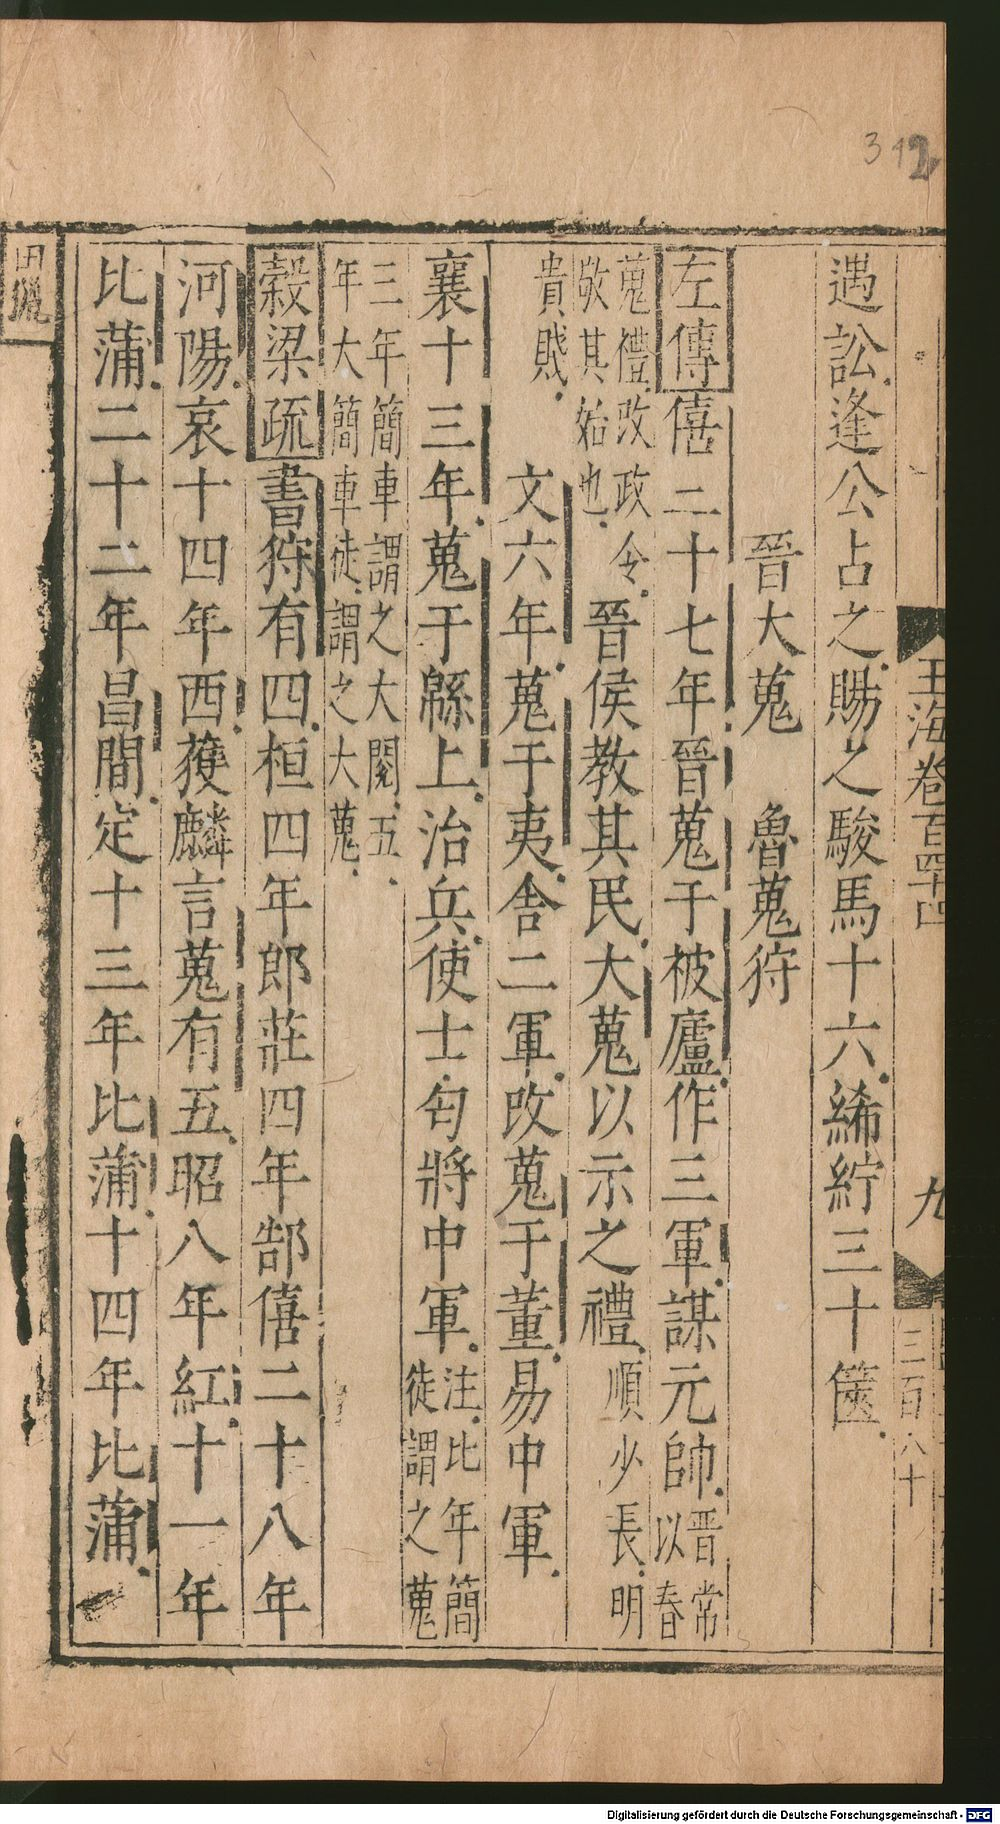 玉海卷百四十四 九 三百八十
遇訟逢公占之賜之駿馬十六絺紵三十篋
晉大蒐 魯蒐狩
左傳僖二十七年晉蒐于被廬作三軍謀元帥晉常以春
蒐禮改政令敬其始也晉侯教其民大蒐以示之禮順少長明
貴賤文六年蒐于夷舍二軍改蒐于董易中軍
襄十三年蒐于緜上治兵使士匄將中軍注比年簡徒謂之蒐
三年簡車謂之大閱五年大簡車徒謂之大蒐
穀梁疏書狩有四桓四年郎莊四年郜僖二十八年
河陽哀十四年西獲麟言蒐有五昭八年紅十一年
比蒲二十二年昌間定十三年比蒲十四年比蒲
田獵
Digitalisierung gefördert durch die Deutsche Forschungsgemeinschaft - DFG